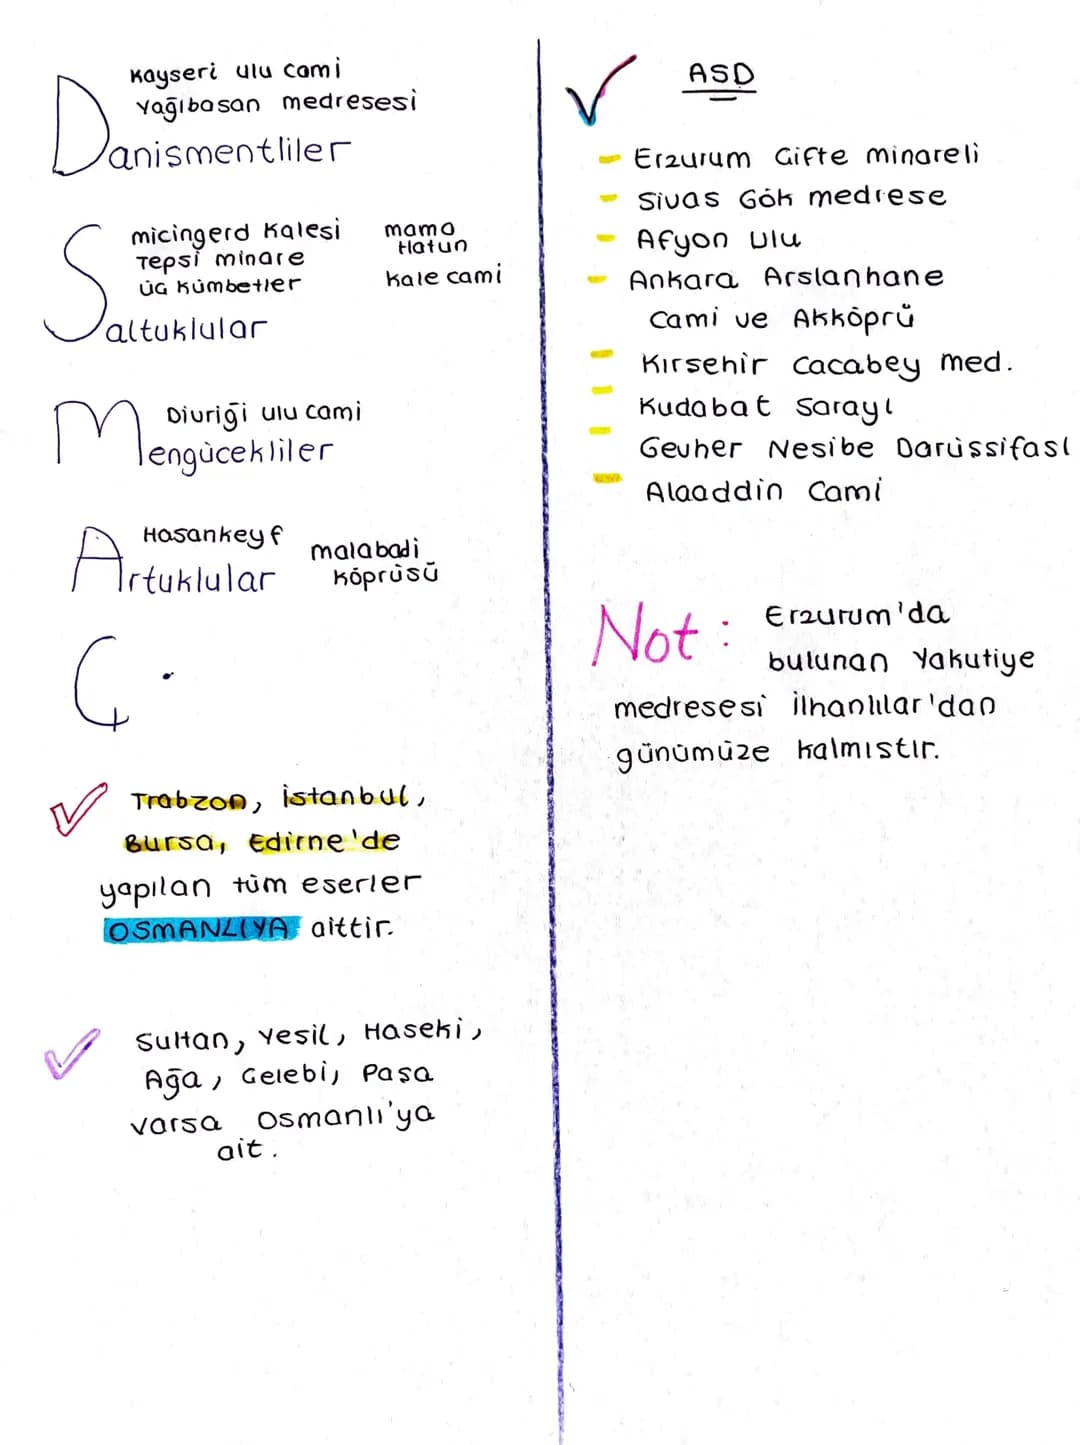 Kayseri ulu cami
Yağıbasan medresesi
Danismentliler
micingerd Kalesi
Tepsi minare
üG Kümbetler
mama
Hatun
kale cami
Saltuklular
Divriği ulu cami
Mengücekliler
Hasankeyf
malabadi
köprüsü
Artuklular
Ç.
Trabzon, istanbul,
Bursa, Edirne'de
yapılan tüm eserler
OSMANLIYA aittir.
Sultan, Yesil, Haseki,
Ağa, Gelebi, Pasa
varsa Osmanlı'ya
ait.
ASD
- Erzurum Gifte minareli
- Sivas Gök medrese
- Afyon Ulu
- Ankara Arslanhane
Cami ve Akköprü
- Kırsehir Cacabey med.
- Kudabat Sarayı
- Gevher Nesibe Darüssifası
- Alaaddin Cami
Not: Erzurum'da
bulunan Yakutiye
medresesi ilhanlılar'dan
günümüze kalmıstır.